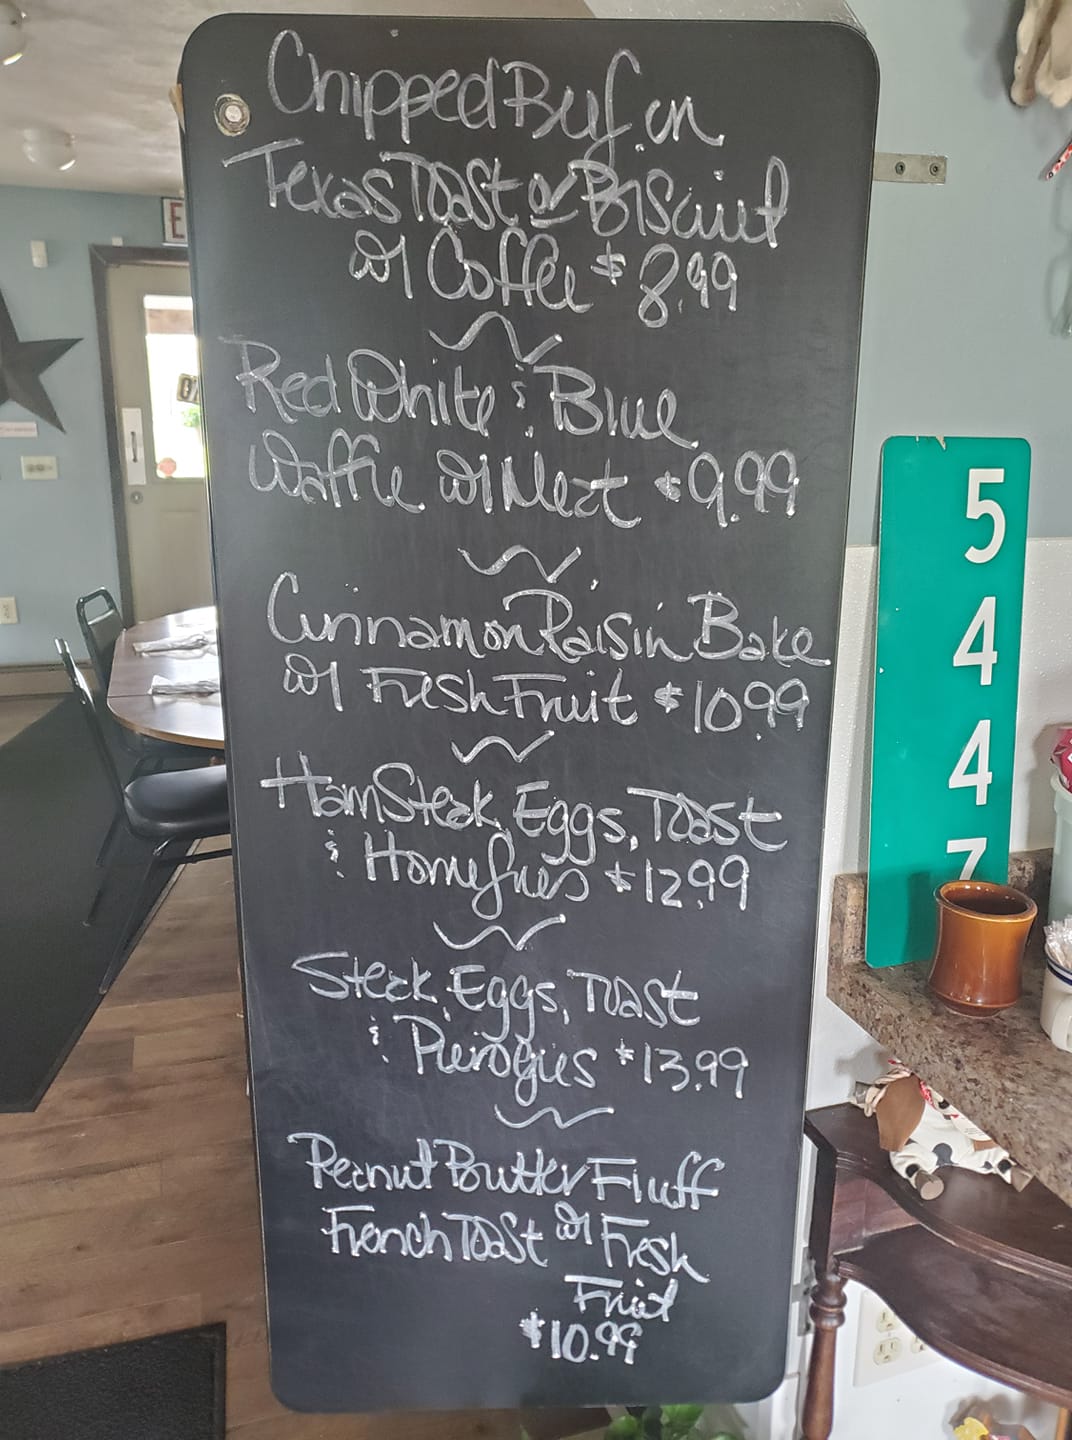 Chipped Beef on
Texas Toast or Biscuit
w/ Coffee $8.99
Red White & Blue
Waffle w/ Meat $9.99
Cinnamon Raisin Bake
w/ Fresh Fruit $10.99
Ham Steak, Eggs, Toast
& Homefries $12.99
Steak, Eggs, Toast
& Pierogies $13.99
Peanut Butter Fluff
French Toast w/ Fresh
Fruit
$10.99
E
5
4
4
7